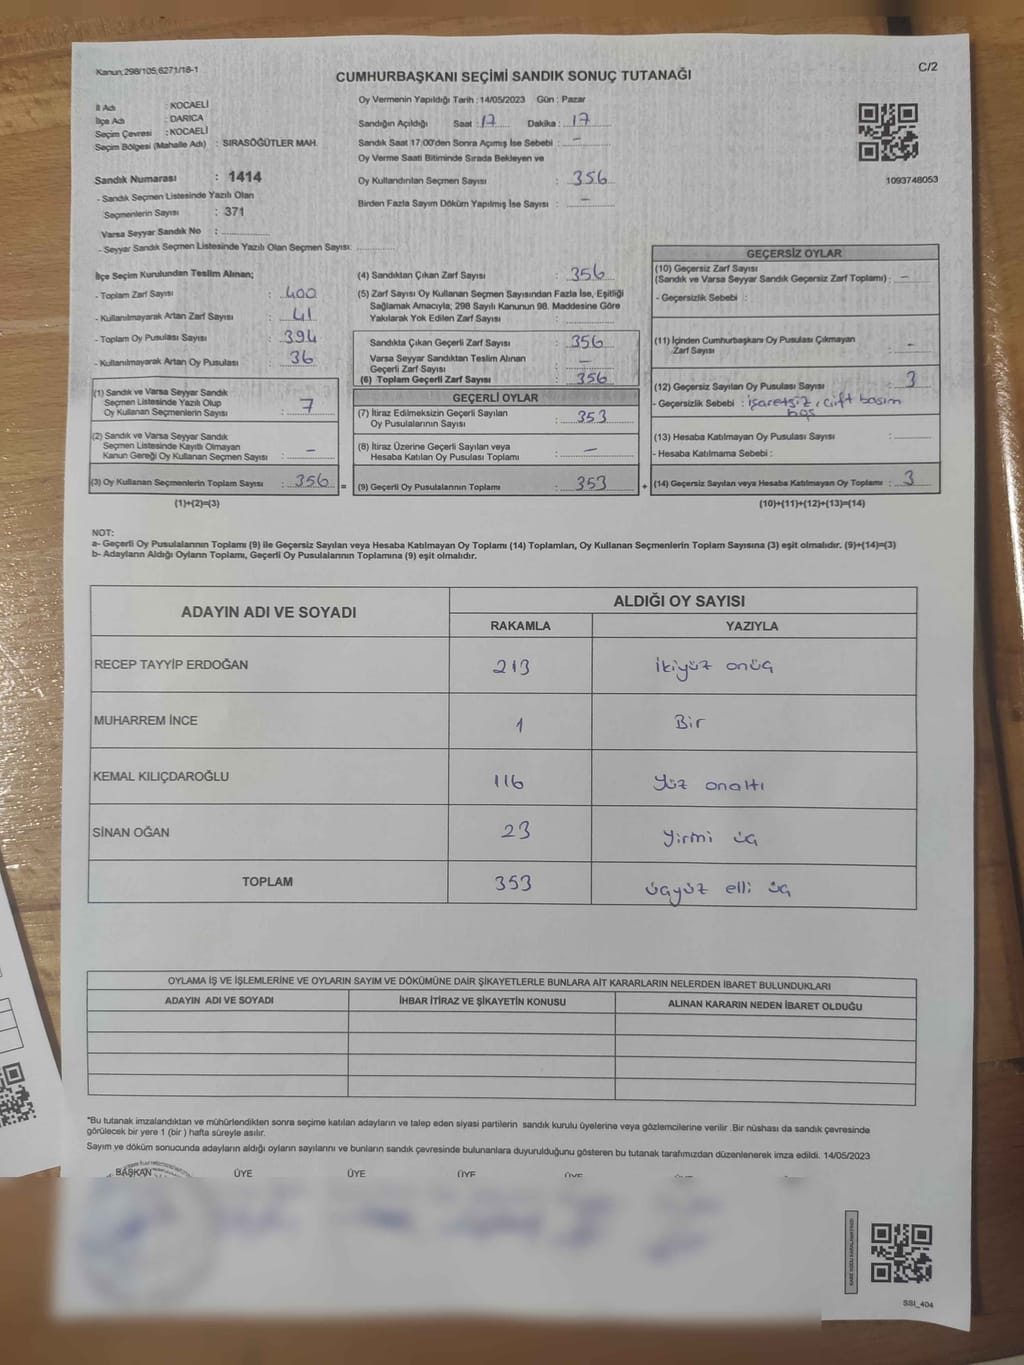 Kanun;298/105,6271/18-1
C/2
CUMHURBAŞKANI SEÇİMİ SANDIK SONUÇ TUTANAĞI
İl Adı : KOCAELİ
İlçe Adı : DARICA
Seçim Çevresi : KOCAELİ
Seçim Bölgesi (Mahalle Adı) : SIRASÖĞÜTLER MAH.
Sandık Numarası : 1414
- Sandık Seçmen Listesinde Yazılı Olan
Seçmenlerin Sayısı : 371
Varsa Seyyar Sandık No :
- Seyyar Sandık Seçmen Listesinde Yazılı Olan Seçmen Sayısı:
Oy Vermenin Yapıldığı Tarih : 14/05/2023 Gün : Pazar
Sandığın Açıldığı Saat : 17 Dakika : 17
Sandık Saat 17:00'den Sonra Açımış İse Sebebi : -
Oy Verme Saati Bitiminde Sırada Bekleyen ve
Oy Kullandırılan Seçmen Sayısı : 356
Birden Fazla Sayım Döküm Yapılmış İse Sayısı : -
1093748053
İlçe Seçim Kurulundan Teslim Alınan;
- Toplam Zarf Sayısı : 400
- Kullanılmayarak Artan Zarf Sayısı : 41
- Toplam Oy Pusulası Sayısı : 394
- Kullanılmayarak Artan Oy Pusulası : 36
(1) Sandık ve Varsa Seyyar Sandık
Seçmen Listesinde Yazılı Olup
Oy Kullanan Seçmenlerin Sayısı : 7
(2) Sandık ve Varsa Seyyar Sandık
Seçmen Listesinde Kayıtlı Olmayan
Kanun Gereği Oy Kullanan Seçmen Sayısı : -
(3) Oy Kullanan Seçmenlerin Toplam Sayısı : 356 =
(1)+(2)=(3)
(4) Sandıktan Çıkan Zarf Sayısı : 356
(5) Zarf Sayısı Oy Kullanan Seçmen Sayısından Fazla İse, Eşitliği
Sağlamak Amacıyla; 298 Sayılı Kanunun 98. Maddesine Göre
Yakılarak Yok Edilen Zarf Sayısı :
Sandıkta Çıkan Geçerli Zarf Sayısı : 356
Varsa Seyyar Sandıktan Teslim Alınan
Geçerli Zarf Sayısı : -
(6) Toplam Geçerli Zarf Sayısı : 356
GEÇERLİ OYLAR
(7) İtiraz Edilmeksizin Geçerli Sayılan
Oy Pusulalarının Sayısı : 353
(8) İtiraz Üzerine Geçerli Sayılan veya
Hesaba Katılan Oy Pusulası Toplamı : -
(9) Geçerli Oy Pusulalarının Toplamı : 353 +
GEÇERSİZ OYLAR
(10) Geçersiz Zarf Sayısı
(Sandık ve Varsa Seyyar Sandık Geçersiz Zarf Toplamı) : -
- Geçersizlik Sebebi :
(11) İçinden Cumhurbaşkanı Oy Pusulası Çıkmayan
Zarf Sayısı : -
(12) Geçersiz Sayılan Oy Pusulası Sayısı : 3
- Geçersizlik Sebebi : işaretsiz, çift basım
boş
(13) Hesaba Katılmayan Oy Pusulası Sayısı :
- Hesaba Katılmama Sebebi :
(14) Geçersiz Sayılan veya Hesaba Katılmayan Oy Toplamı : 3
(10)+(11)+(12)+(13)=(14)
NOT:
a- Geçerli Oy Pusulalarının Toplamı (9) ile Geçersiz Sayılan veya Hesaba Katılmayan Oy Toplamı (14) Toplamları, Oy Kullanan Seçmenlerin Toplam Sayısına (3) eşit olmalıdır. (9)+(14)=(3)
b- Adayların Aldığı Oyların Toplamı, Geçerli Oy Pusulalarının Toplamına (9) eşit olmalıdır.
ADAYIN ADI VE SOYADI ALDIĞI OY SAYISI
RAKAMLA YAZIYLA
RECEP TAYYİP ERDOĞAN 213 ikiyüz onüç
MUHARREM İNCE 1 Bir
KEMAL KILIÇDAROĞLU 116 Yüz onaltı
SİNAN OĞAN 23 Yirmi üç
TOPLAM 353 üçyüz elli üç
OYLAMA İŞ VE İŞLEMLERİNE VE OYLARIN SAYIM VE DÖKÜMÜNE DAİR ŞİKAYETLERLE BUNLARA AİT KARARLARIN NELERDEN İBARET BULUNDUKLARI
ADAYIN ADI VE SOYADI İHBAR İTİRAZ VE ŞİKAYETİN KONUSU ALINAN KARARIN NEDEN İBARET OLDUĞU
*Bu tutanak imzalandıktan ve mühürlendikten sonra seçime katılan adayların ve talep eden siyasi partilerin sandık kurulu üyelerine veya gözlemcilerine verilir .Bir nüshası da sandık çevresinde
görülecek bir yere 1 (bir ) hafta süreyle asılır.
Sayım ve döküm sonucunda adayların aldığı oyların sayılarını ve bunların sandık çevresinde bulunanlara duyurulduğunu gösteren bu tutanak tarafımızdan düzenlenerek imza edildi. 14/05/2023
BAŞKAN ÜYE ÜYE ÜYE ÜYE
SSI_404